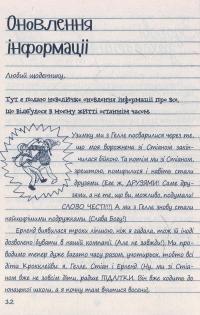 Оновлення
інформації
Любий щоденнику,
Тут я подаю невеличке оновлення інформації про все,
що відбулося в моєму житті останнім часом.
Узимку ми з Гелле посварилися через те,
що моя ворожнеча зі Стіаном закін-
чилася бійкою. Та потім ми зі Стіаном,
зрештою, помирилися і навіть стали
друзями. (Еге ж, ДРУЗЯМИ! Саме дру-
зями, а не те, що ви, можливо, подумали!
СЛОВО ЧЕСТІ!!!) А ми з Гелле знову стали
найкращими подружками (Слава Богу!)
Ерленд виявився трохи ліпшим, ніж я гадала, тож їй іноді
дозволено бувати в нашій компанії. (Але не завжди!) Ми про-
водимо тепер дуже багато часу разом, учотирьох, тобто всі
діти Крокклейви: я, Гелле, Стіан і Ерленд (Ну, ми зі Стіа-
ном вже не зовсім діти, радше ПІДЛІТКИ. Він вже ходить до
юнацької школи, а я почну там вчитися восени).
32